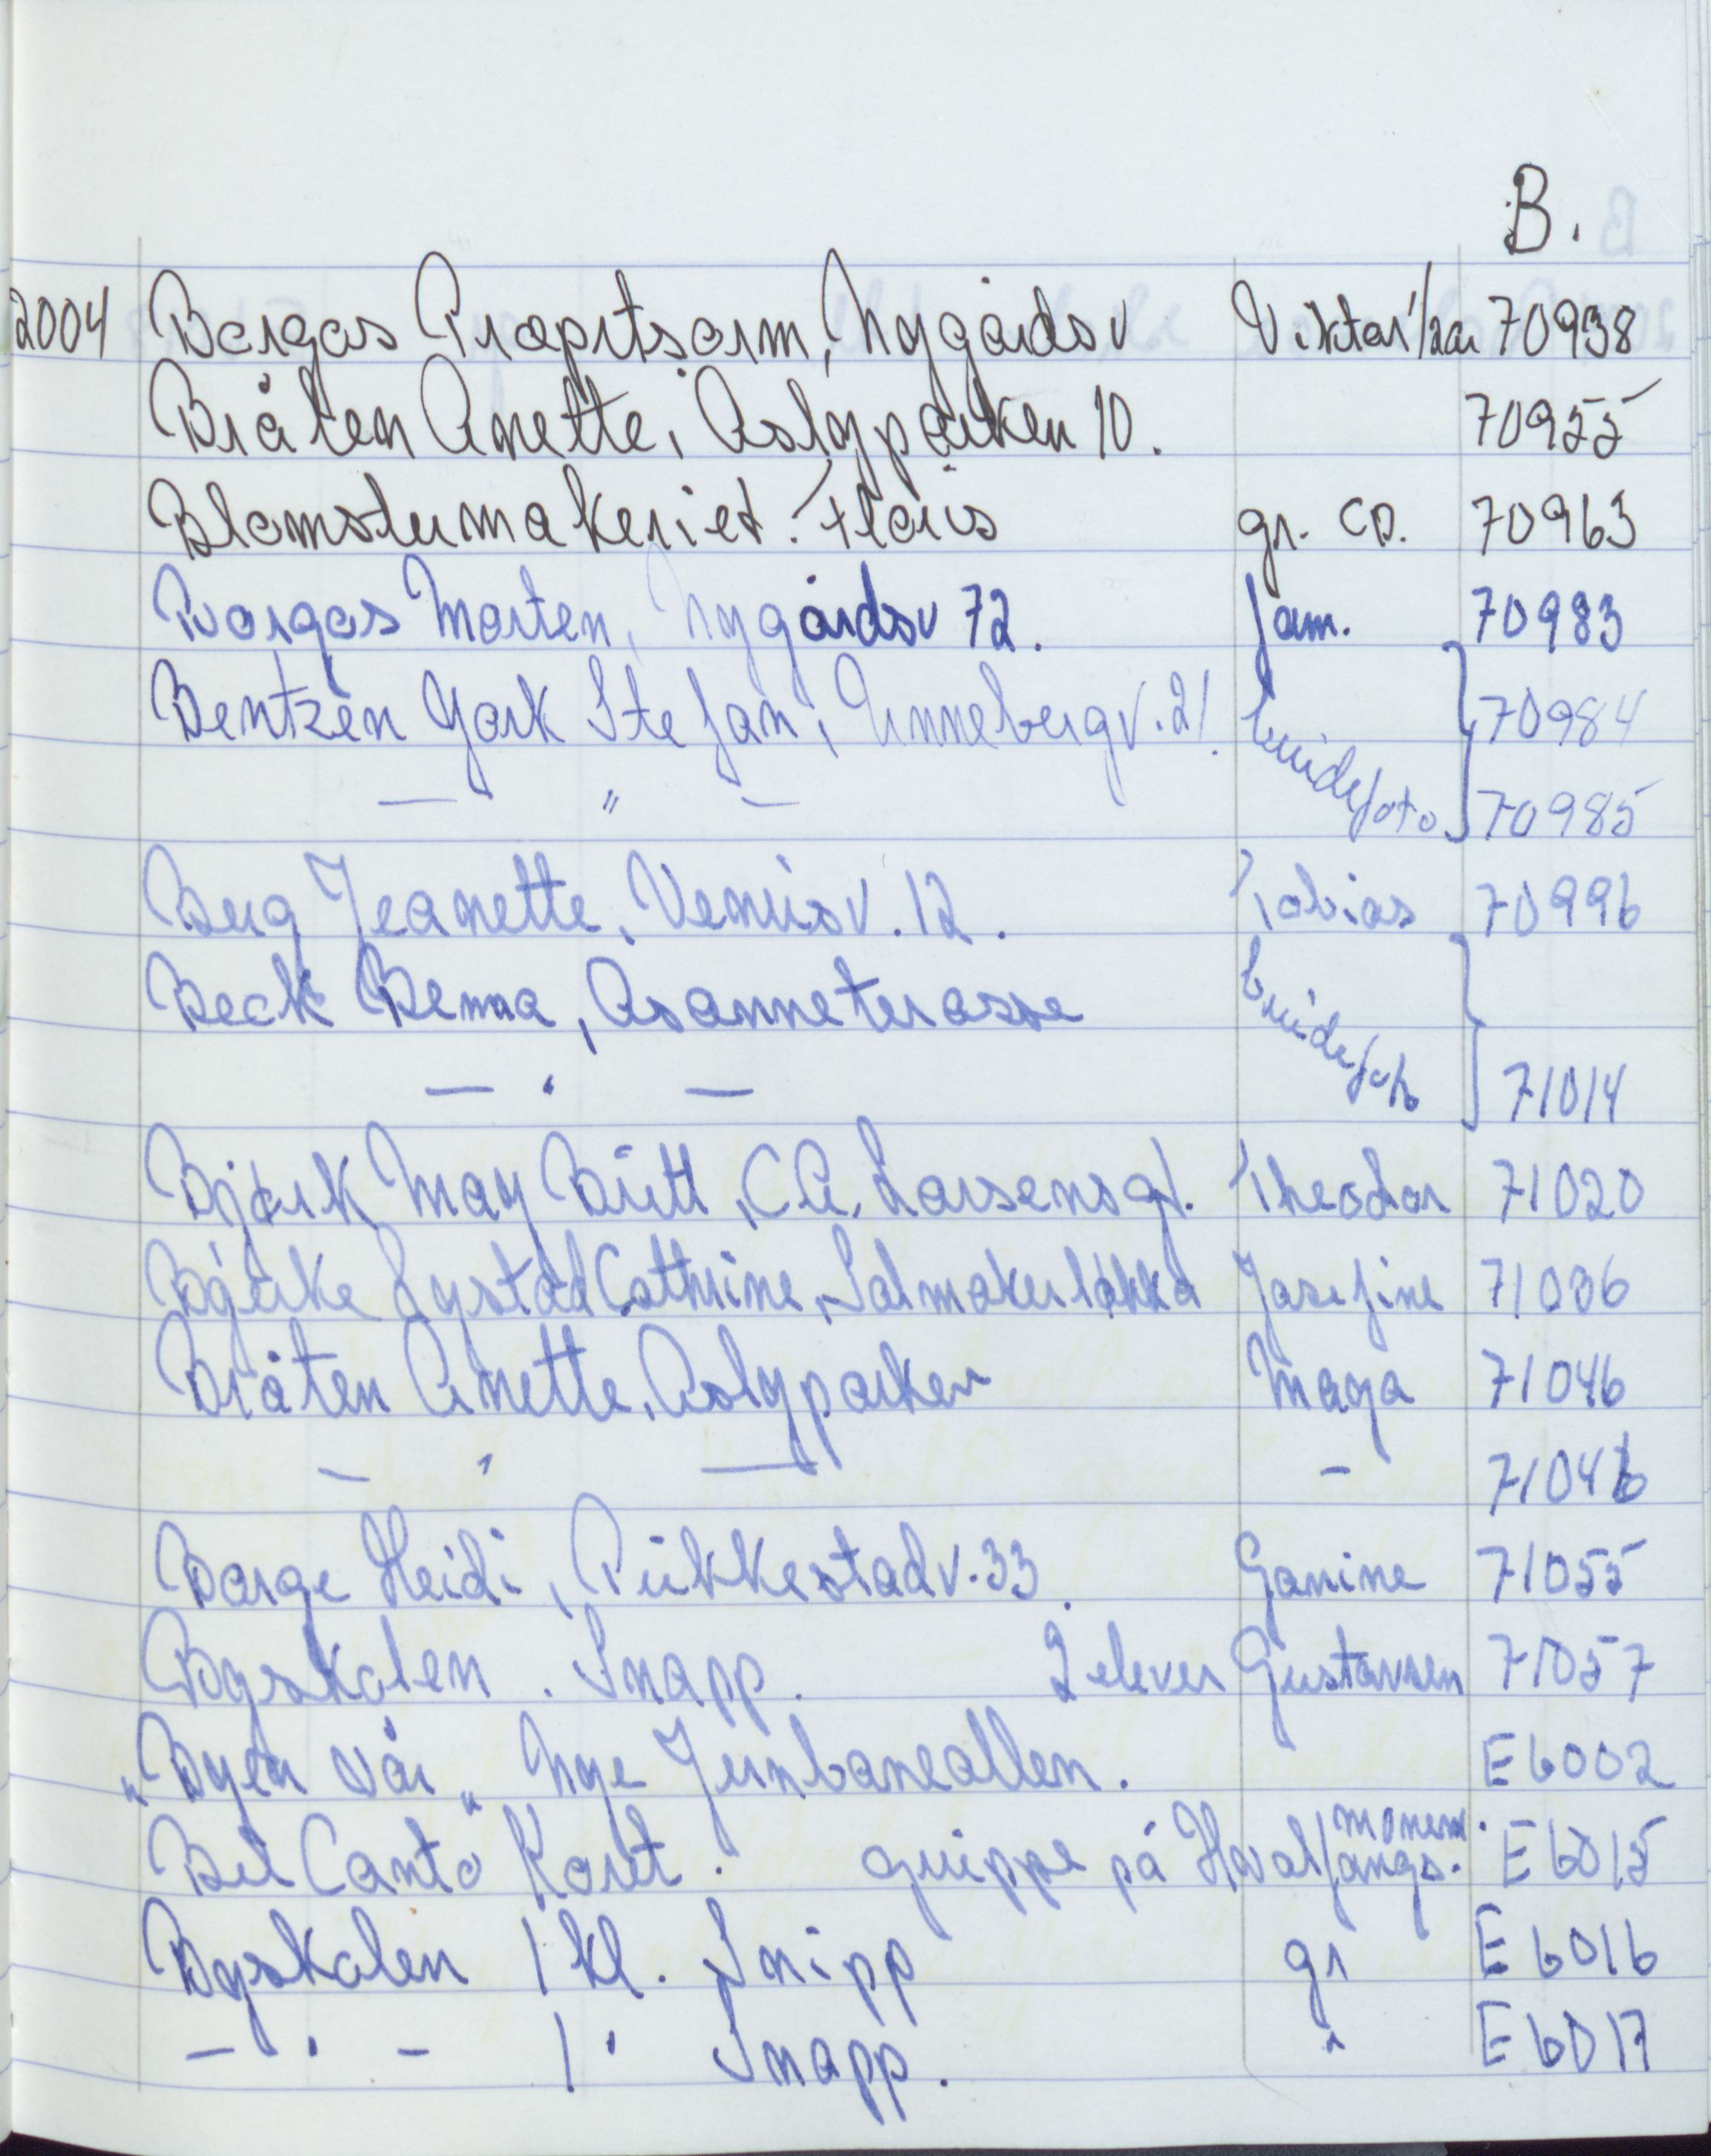 B.
2004 Borgas Propitsorm, Nygårdsv Viktor 1/2år 70938
Bråten Anette, Aslyparken 10. 70955
Blomstermakeriet. Floris gr. CD. 70963
Borgas Morten, Nygårdsv 72. fam. 70983
Bentzen York Stefan, Unnebergv. 21. brudefoto 70984
— " — 70985
Berg Jeanette, Venusv. 12. Tobias 70996
Beck Benna, Åsanneterasse brudefoto
— " — 71014
Bjørk May Britt, C.A. Larsensgt. Theodor 71020
Bjerke Lystad Cathrine, Salmakerløkka Josefine 71036
Bråten Anette, Aslyparken Maya 71046
— " — - 71046
Borge Heidi, Pukkestadv. 33. Janine 71055
Byskolen. Snapp. 2 elever Gustavsen 71057
"Byen vår" Nye Jernbanealleen. E6002
Bel Canto Koret. gruppe på Hvalfangs. monem. E6015
Byskolen 1 kl. Snipp gr E6016
- " - 1 " Snapp. " E6017